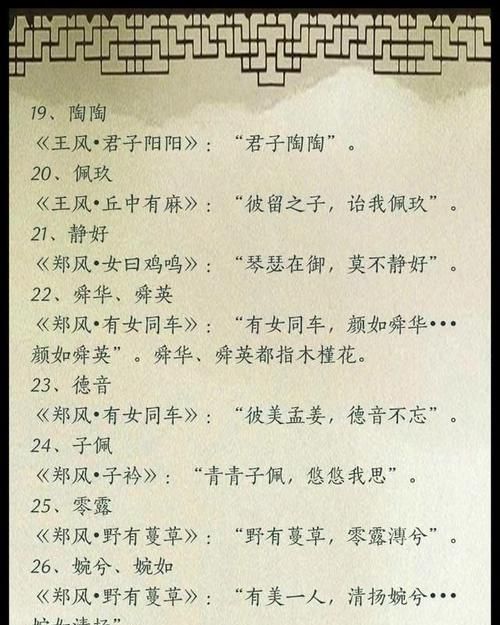 19、陶陶
《王风•君子阳阳》：“君子陶陶”。
20、佩玖
《王风•丘中有麻》：“彼留之子，诒我佩玖”。
21、静好
《郑风•女曰鸡鸣》：“琴瑟在御，莫不静好”。
22、舜华、舜英
《郑风•有女同车》：“有女同车，颜如舜华•••
颜如舜英”。舜华、舜英都指木槿花。
23、德音
《郑风•有女同车》：“彼美孟姜，德音不忘”。
24、子佩
《郑风•子衿》：“青青子佩，悠悠我思”。
25、零露
《郑风•野有蔓草》：“野有蔓草，零露漙兮”。
26、婉兮、婉如
《郑风•野有蔓草》：“有美一人，清扬婉兮•••
婉如清扬”